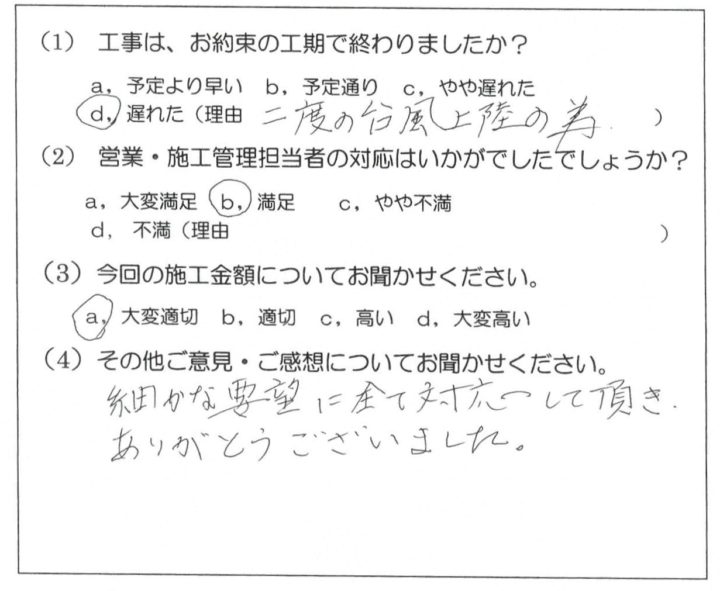 (1) 工事は、お約束の工期で終わりましたか？
a, 予定より早い b, 予定通り c, やや遅れた
d, 遅れた（理由 二度の台風上陸の為. ）
(2) 営業・施工管理担当者の対応はいかがでしたでしょうか？
a, 大変満足 b, 満足 c, やや不満
d, 不満（理由 ）
(3) 今回の施工金額についてお聞かせください。
a, 大変適切 b, 適切 c, 高い d, 大変高い
(4) その他ご意見・ご感想についてお聞かせください。
細かな要望に全て対応して頂き.
ありがとうございました。